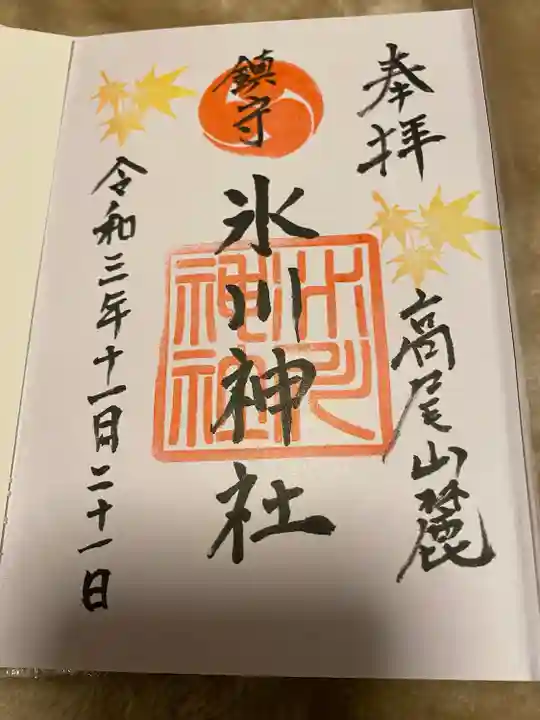 奉拝
高尾山麓
鎮守
氷川神社
氷川神社
令和三年十一月二十一日